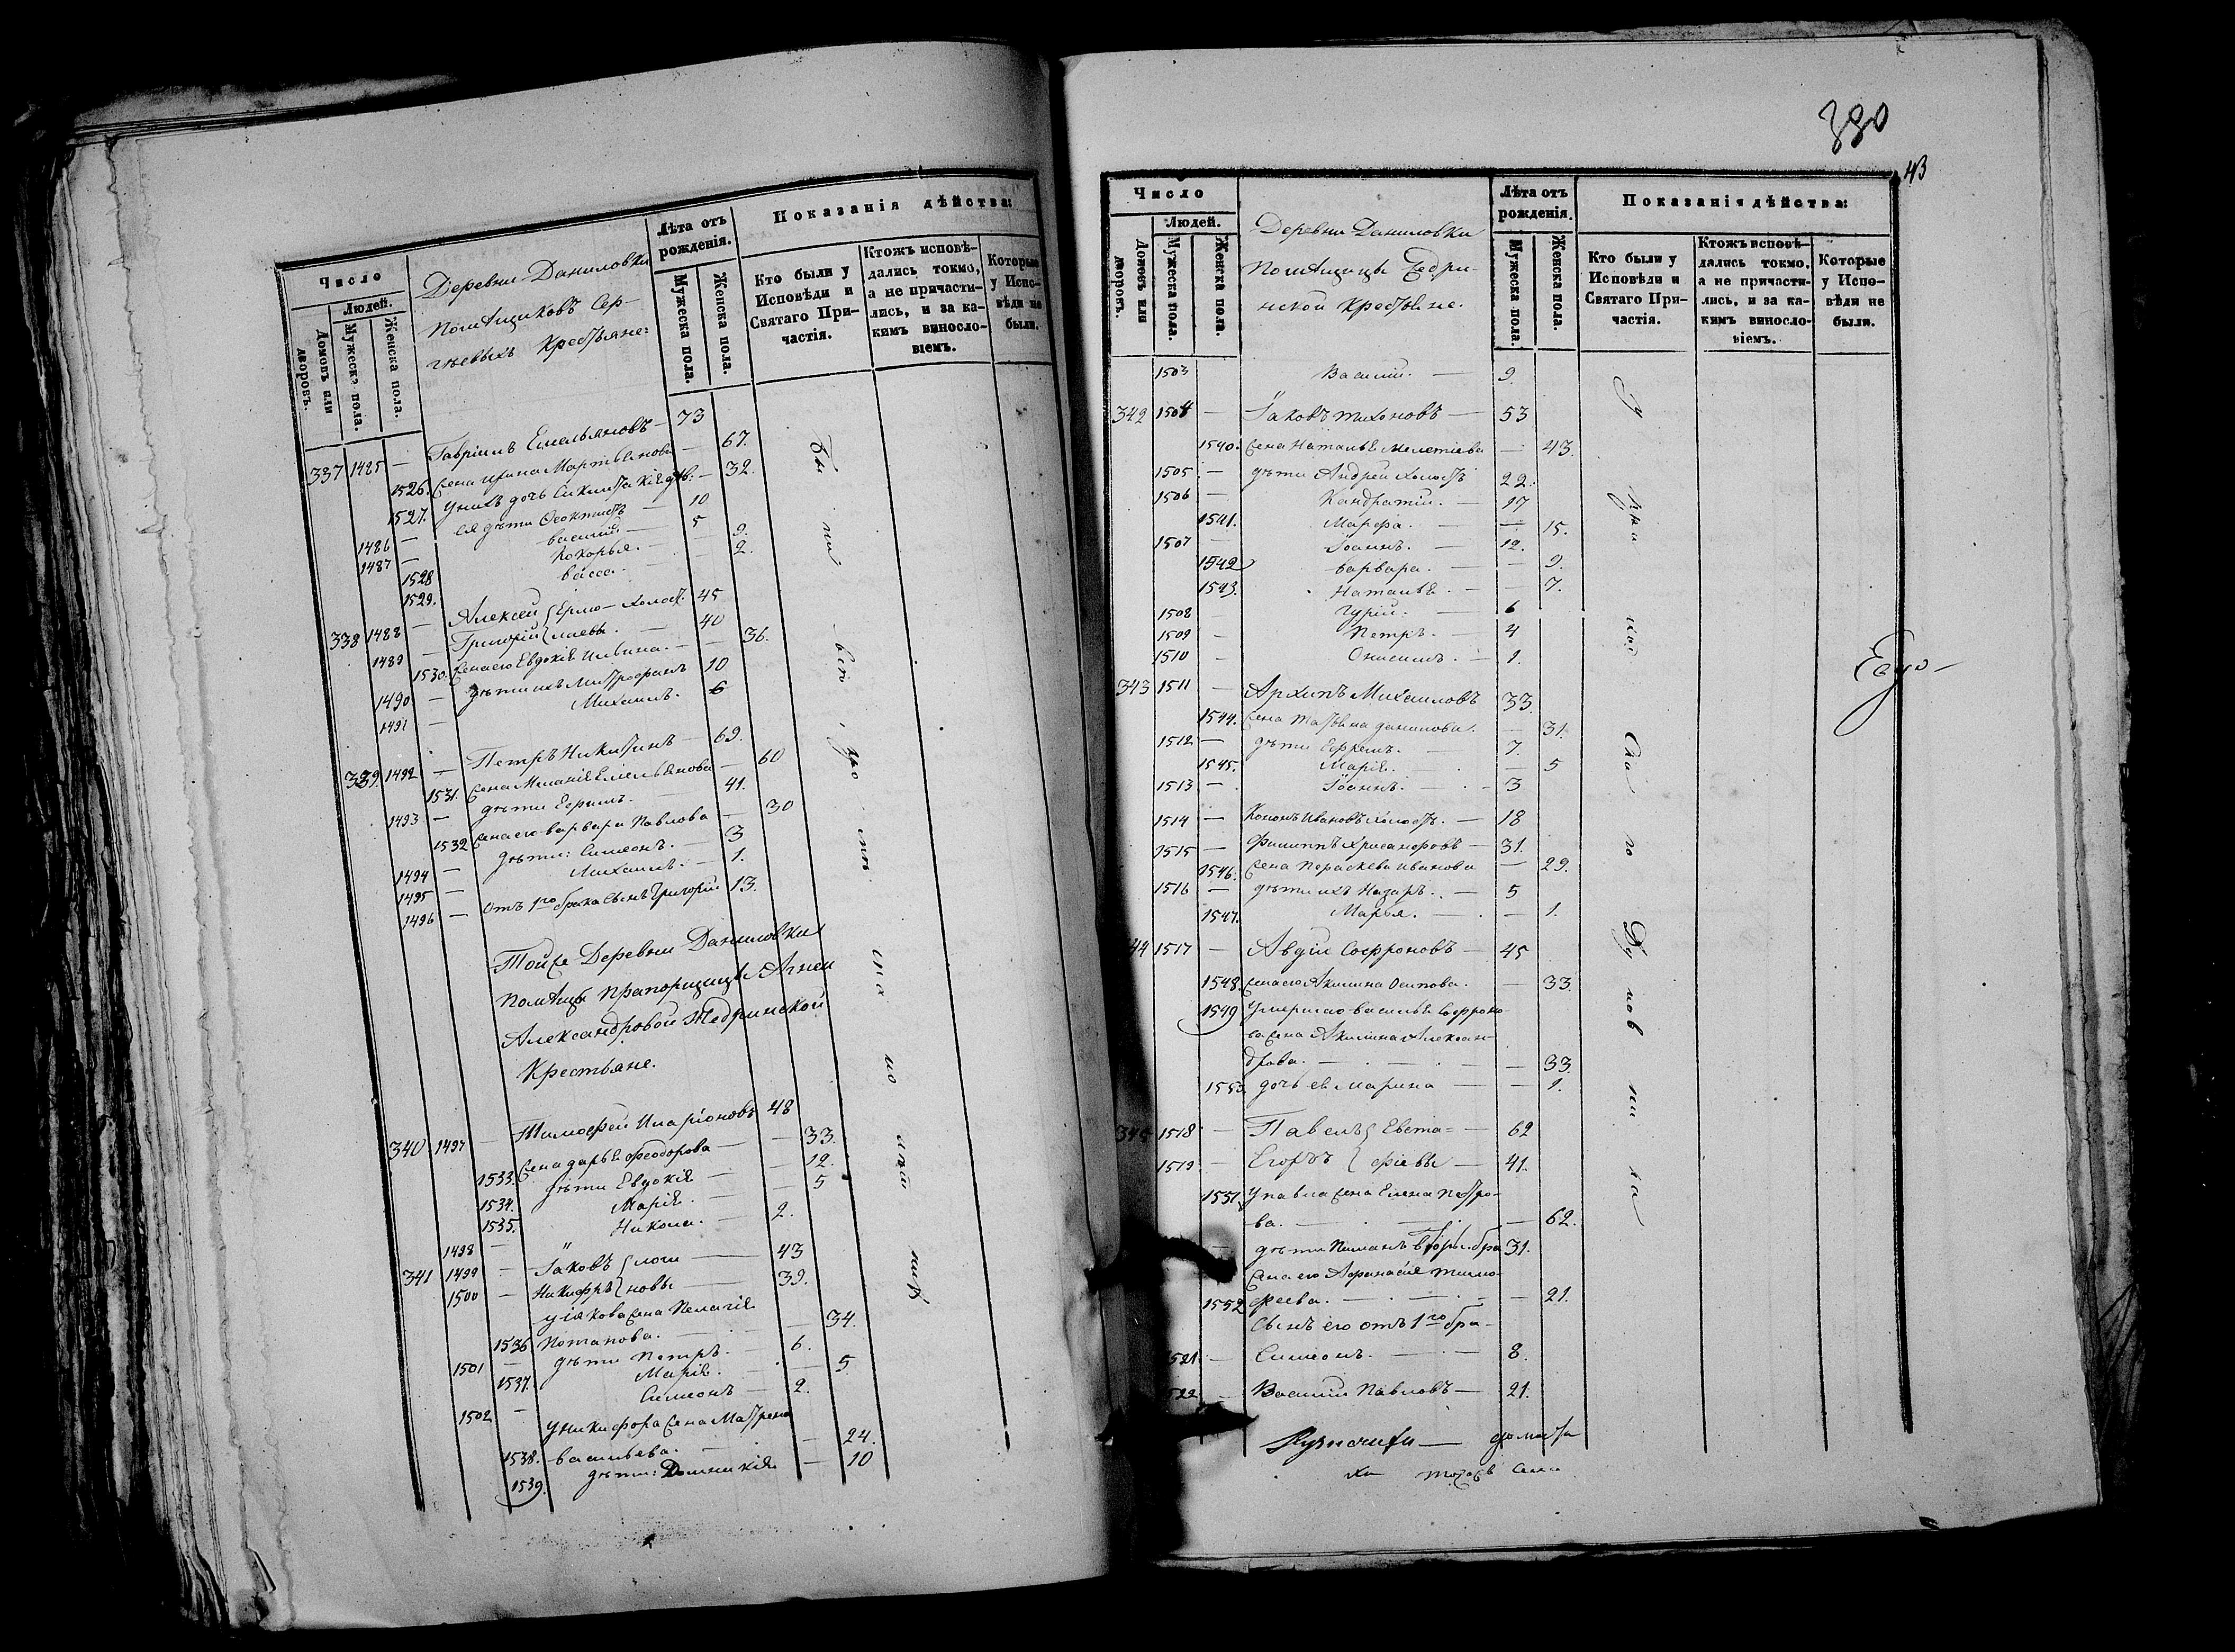 Число
Людей.
Домовъ или дворовъ.
Мужеска пола.
Женска пола.
Деревни Даниловки
помѣщиковъ Сер-
гѣевыхъ Крестьяне:
Лѣта отъ рожденія.
Мужеска пола.
Женска пола.
Показанія дѣйства:
Кто были у Исповѣди и Святаго Причастія.
Ктожъ исповѣдались токмо, а не причастились, и за какимъ винословіемъ.
Которые у Исповѣди не были.
337 1485 — Гавріилъ Емельяновъ — 73
1526. жена Ирина Мартынова — 67.
1527. у нихъ дочь — 32.
1486 — ея дѣти Ѳеоктистъ — 10
1487 — Василій — 5
1528 — 9.
1529. Васса — 2.
338 1488 — Алексей Ермо- холост. 45
1489 — Григорій лаевы. — 40
1530. жена его Евдокія Ильина. — 36.
1490 — дѣти ихъ Митрофанъ 10
1491 — Михаилъ. — 6
339. 1492 — Петръ Никитинъ — 69.
1531. жена Меланія Емельянова — 60
1493 — дѣти Ефримъ. — 41.
1532 жена его Варвара Павлова — 30
1494 — дѣти: Симеонъ. — 3
1495 — Михаилъ. — 1.
1496 — отъ 1го брака сынъ Григорій 13.
Тойже Деревни Даниловки
помѣщицы Прапорщицы Агнеи
Александровой Жедринской
Крестьяне.
340 1497 — Тимофей Иларіоновъ 48
1533. жена Дарья Феодорова — 33.
1534. дѣти Евдокія — 12.
1535. Марія. — 5
1498 — Никола. — 2.
341 1499 — Іаковъ логи — 43
1500 — Никифръ новы — 39.
у Іякова жена Пелагія
1536 Потапова. — 34.
1501 — дѣти Петръ. — 6.
1537. Марія. — 5
1502 — Симеонъ — 2.
у Никифора жена Матрена
1538. Васильева. — 24.
1539. дѣти: Домникія — 10
330
43
Число
Людей.
Домовъ или дворовъ.
Мужеска пола.
Женска пола.
Деревни Даниловки
помѣщицы Жедри-
нской крестьяне.
Лѣта отъ рожденія.
Мужеска пола.
Женска пола.
Показанія дѣйства:
Кто были у Исповѣди и Святаго Причастія.
Ктожъ исповѣдались токмо, а не причастились, и за какимъ винословіемъ.
Которые у Исповѣди не были.
1503 Василій. — 9.
342 1504 — Іаковъ Тихоновъ — 53
1540. жена Наталья Мелетіева — 43.
1505. — дѣти Андрей холостъ 22.
1506 — Кандратій. — 17
1541. Марфа. — 15.
1507 — Іоаннъ. — 12.
1542 Варвара. — 9.
1543. Наталья. — 7.
1508 Гурій. — 6
1509 — Петръ. — 4
1510 — Онисимъ. — 1.
343 1511 — Архипъ Михаиловъ 33.
1544. жена Татьяна Данилова. — 31.
1512 — дѣти Ефремъ. — 7.
1545. Марія. — 5
1513 — Іоаннъ. — 3
1514 — Кононъ Ивановъ холостъ. — 18
1515 — Филиппъ Хрисанфовъ — 31.
1546. жена Параскева Иванова — 29.
1516 — дѣти ихъ Назаръ. — 5
1547. Марья. — 1.
44 1517 — Авдій Софроновъ — 45
1548. жена его Акилина Осипова. — 33.
1549 умершаго Василья Софроно-
ва жена Акилина Алексан-
дрова. — 33.
1553 дочь ея Марина — 1.
345 1518 — Павелъ Евста= — 62
1519 — Егоръ фіевы — 41.
1551. у Павла жена Елена Петро-
ва. — 62.
31.
жена его Афанасія Тимо-
1552 феева. — 21.
Сынъ его отъ 1го бра-
1521 — Симеонъ. — 8.
1522 — Василій Павловъ — 21.